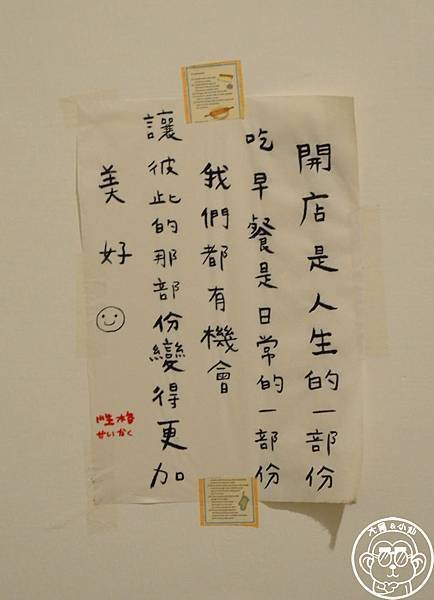 開店是人生的一部份
吃早餐是日常的一部份
我們都有機會
讓彼此的那部份變得更加
美好
性格
せいかく